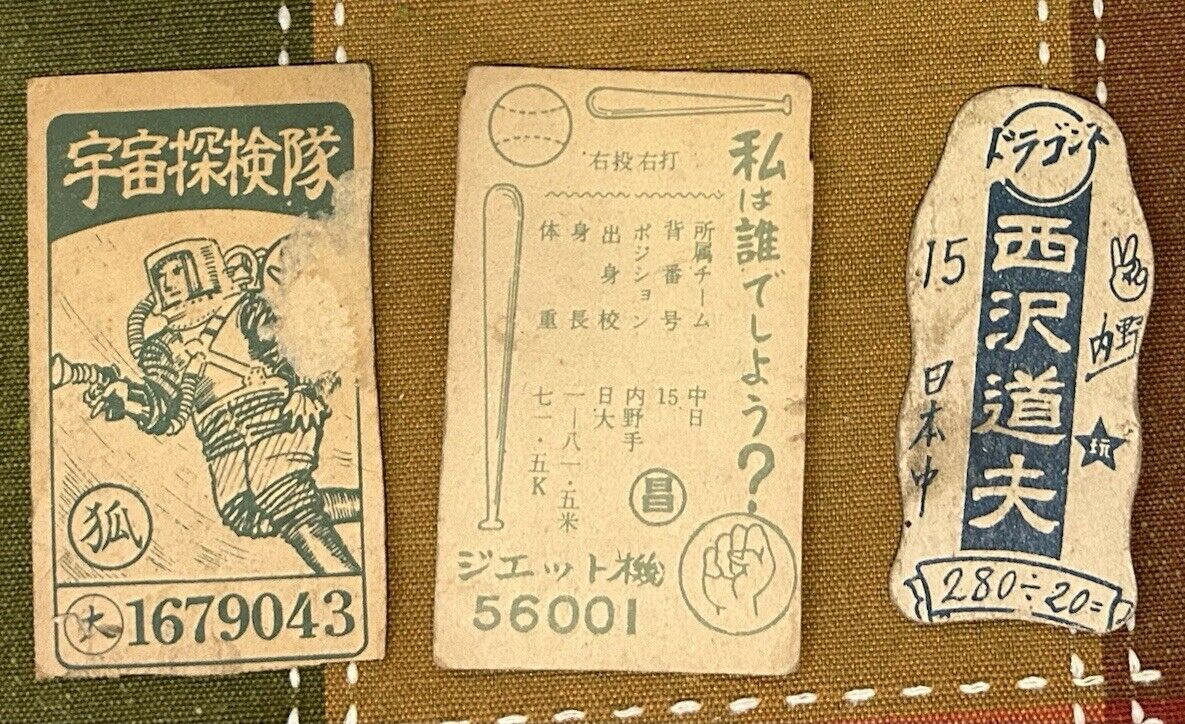 宇宙探検隊
狐
大
1679043
右投右打
私は誰でしょう?
所属チーム 中日
背番号 15
ポジション 内野手
出身校 日大
身長 一—八一・五米
体重 七一・五K
昌
ジエット機
56001
ドラゴント
西沢道夫
15
日本中
内野
玩
280÷20=